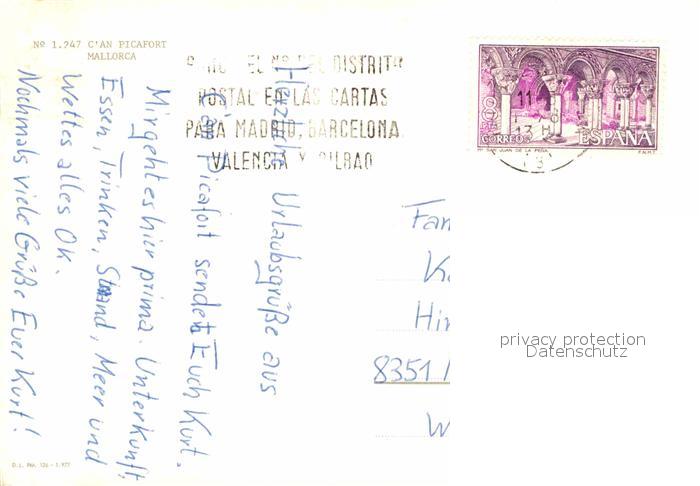 Nº 1.247 C'AN PICAFORT
MALLORCA
EL Nº DEL DISTRITO
POSTAL EN LAS CARTAS
PARA MADRID, BARCELONA
VALENCIA Y BILBAO
8
CORREOS
ESPAÑA
Mº SAN JUAN DE LA PEÑA
F.N.M.T.
11
13 H
Herzliche Urlaubsgrüße aus
C'an Picafort sendet Euch Kurt.
Mir geht es hier prima. Unterkunft,
Essen, Trinken, Strand, Meer und
Wetter alles OK.
Nochmals viele Grüße Euer Kurt!
Fam
Hin
8351
W
privacy protection
Datenschutz
D.L. PM. 126-1.977